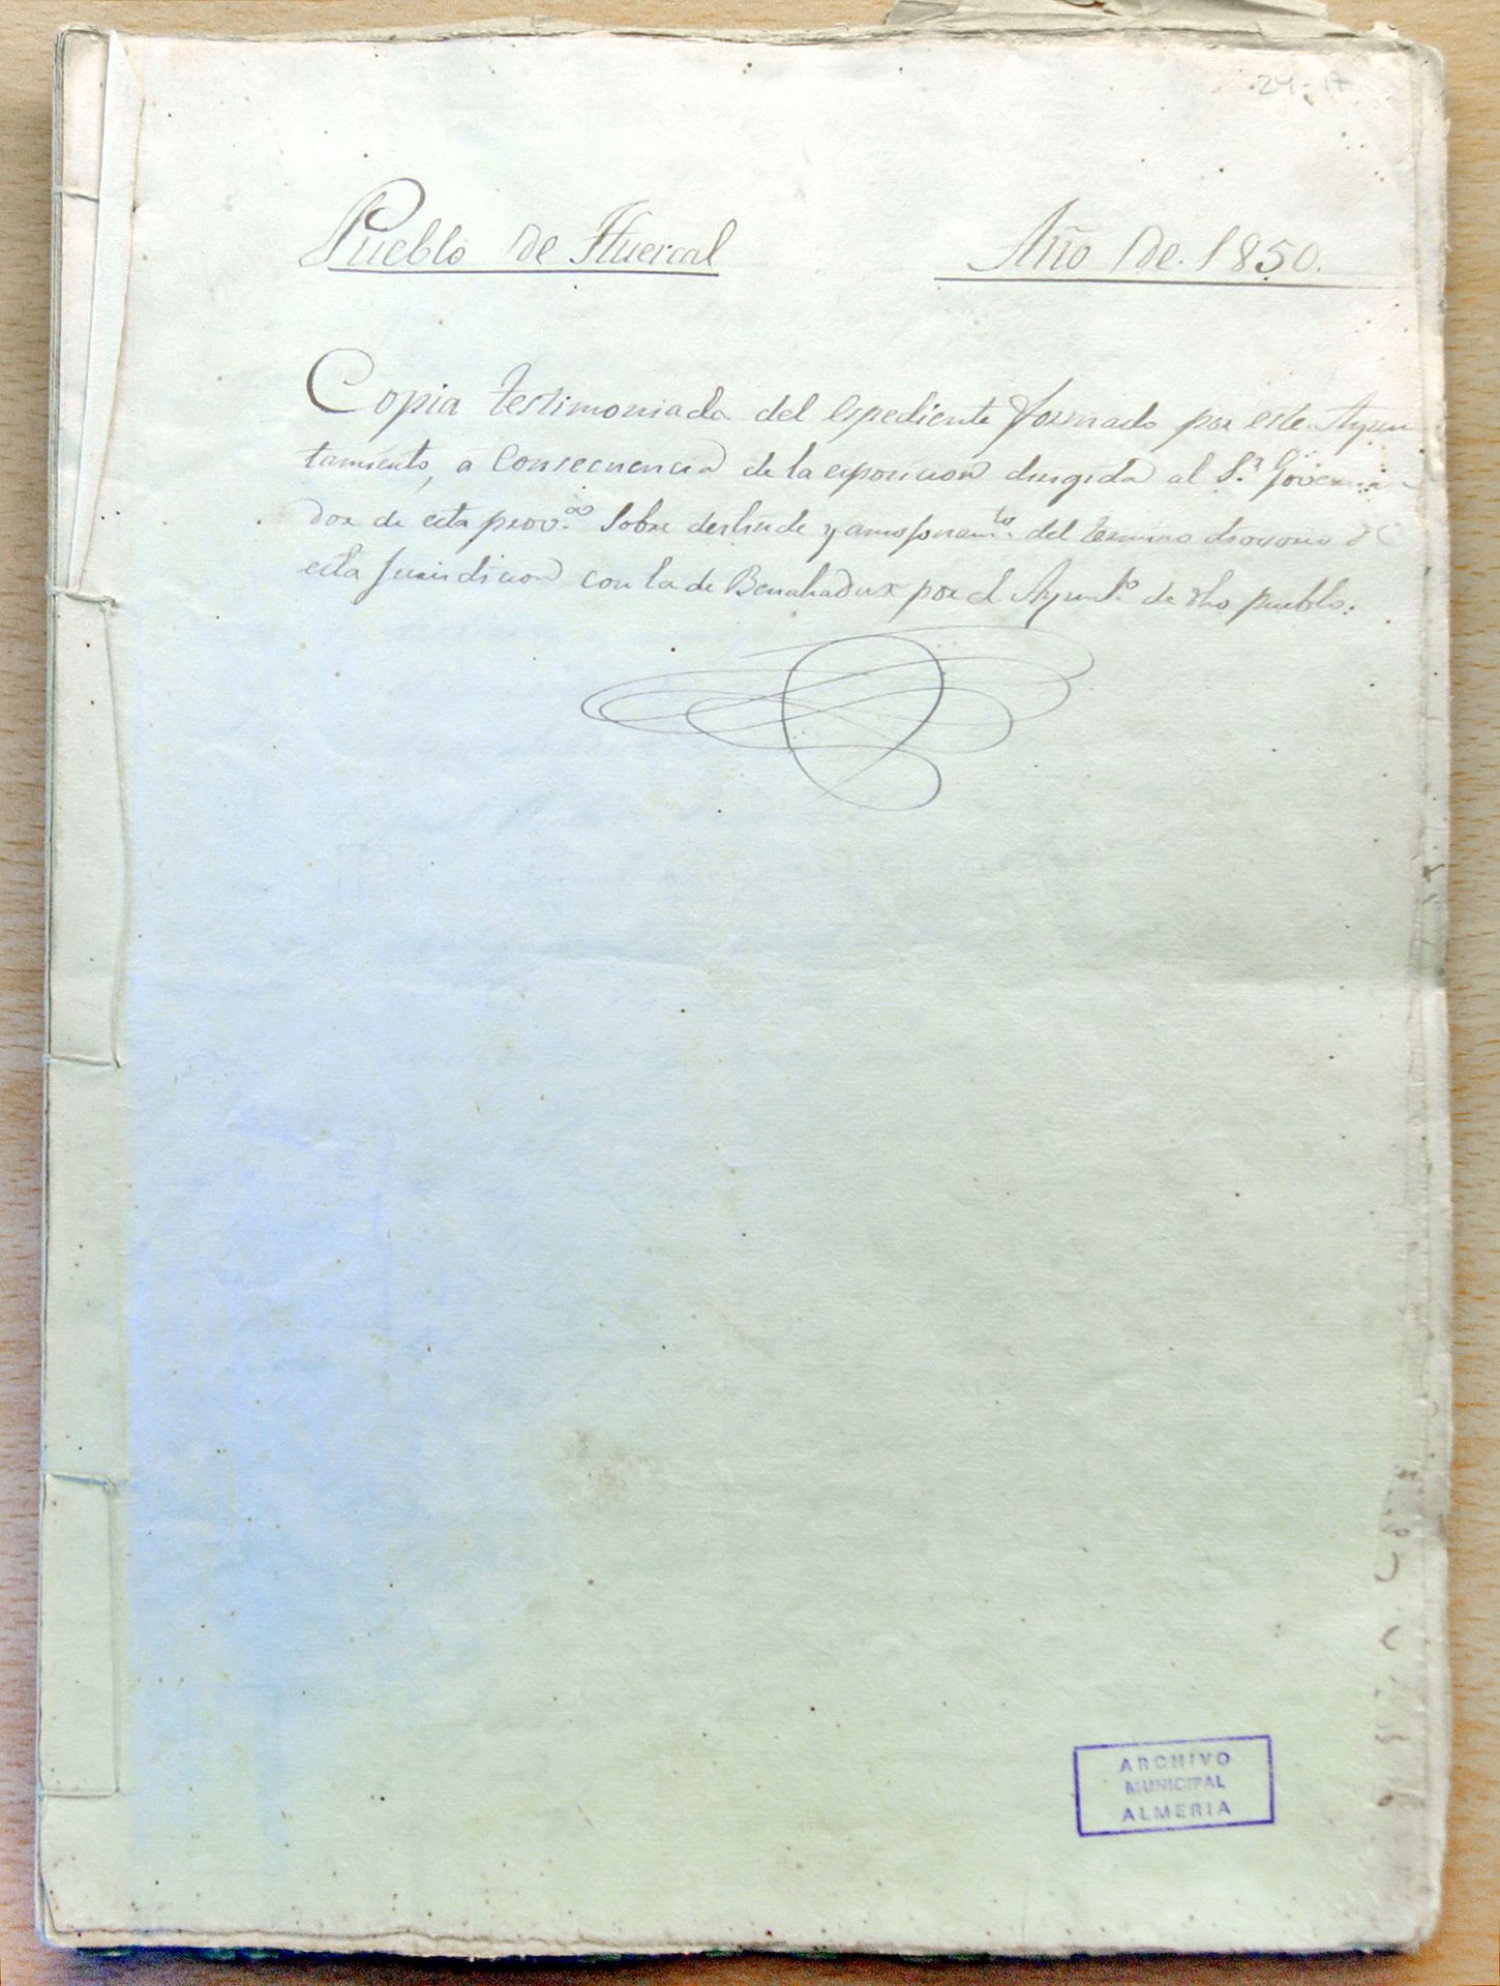 24-17
Pueblo de Huercal
Año de. 1850.
Copia testimoniada del espediente formado por este Ayun
tamiento, a consecuencia de la exposicion dirigida al S.r Governa
dor de esta prov.a sobre deslinde y amojonam.to del termino divisorio de
esta Jurisdicion con la de Benahadux por el Ayunt.o de dho pueblo.
ARCHIVO
MUNICIPAL
ALMERIA